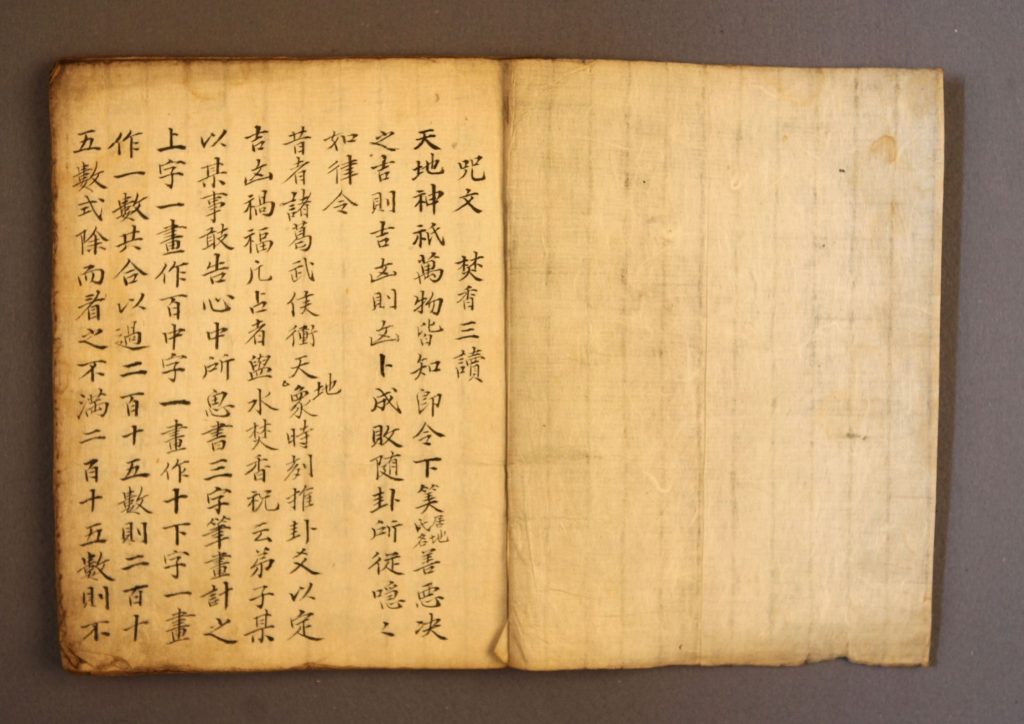 咒文 焚香三讀
天地神祇萬物皆知卽令下筭居地氏名善惡决
之吉則吉凶則凶卜成敗随卦所從噫〻
如律令
昔者諸葛武侯衝天地象時刻推卦爻以定
吉凶禍福凢占者盥水焚香祝云弟子某
以某事敢告心中所思書三字筆畫計之
上字一畫作百中字一畫作十下字一畫
作一數共合以過二百十五數則二百十
五數式除而看之不滿二百十五數則不